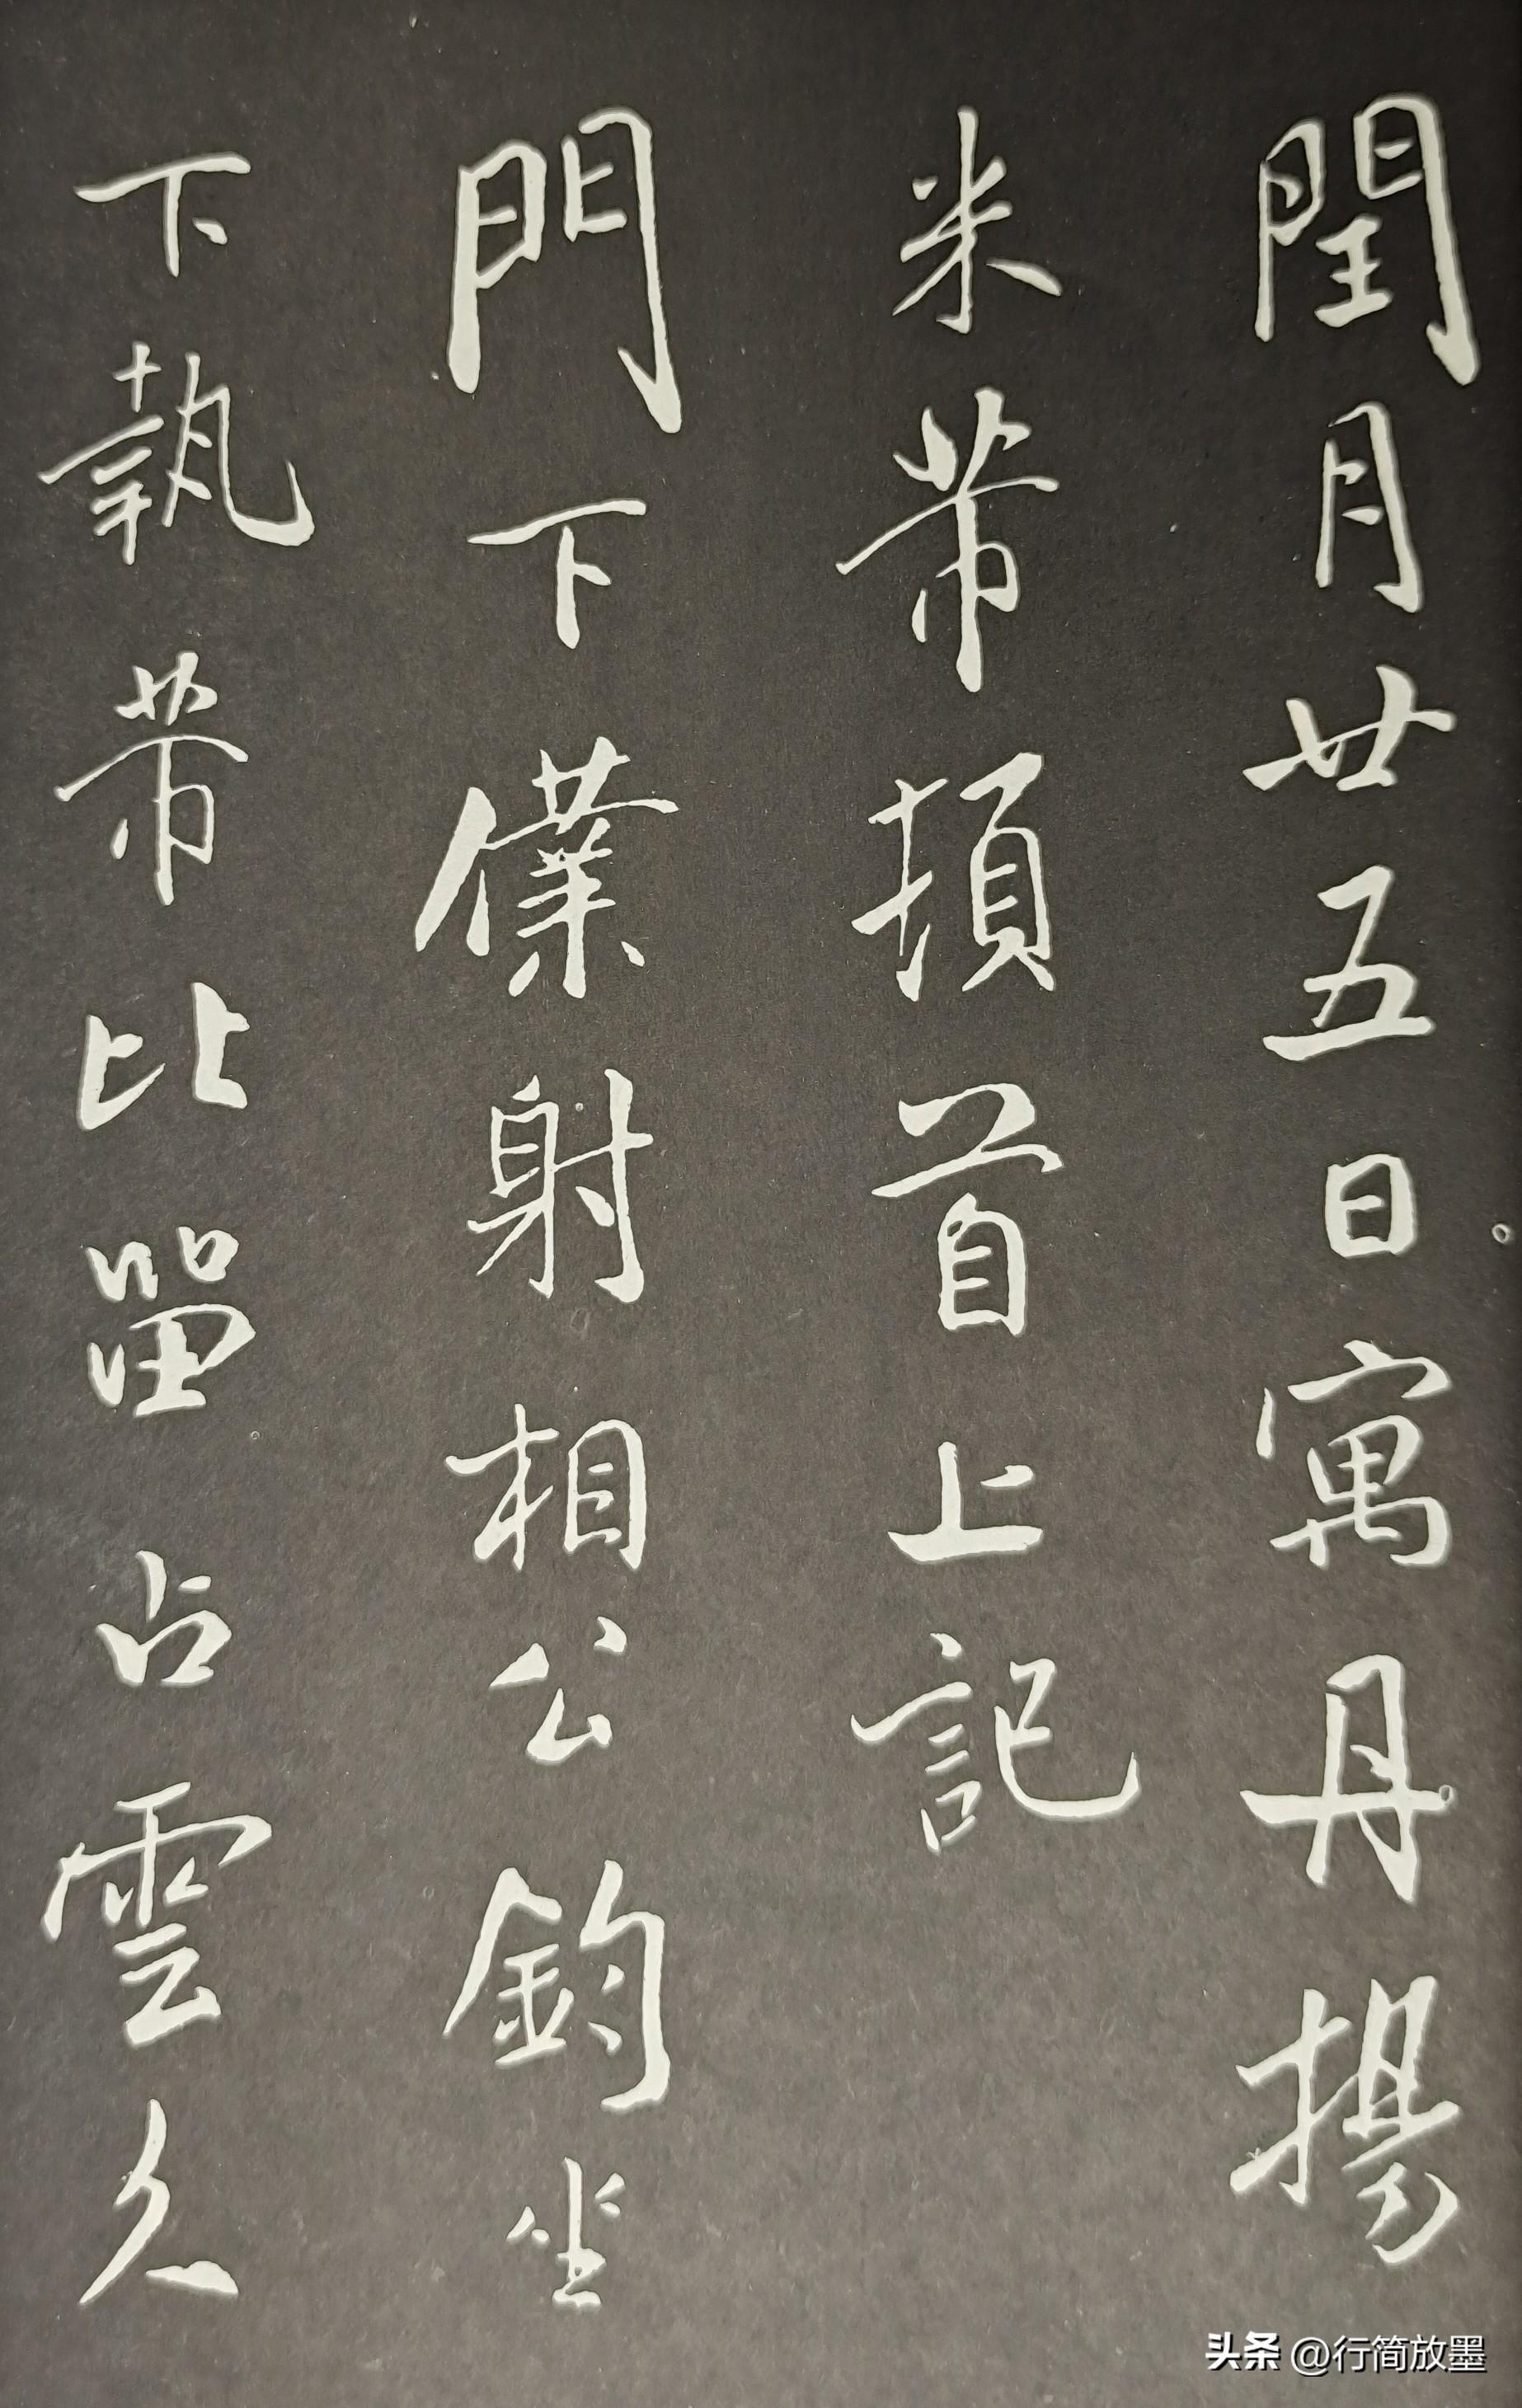 閏月廿五日寓丹揚
米芾頓首上記
門下僕射相公鈞坐
下執芾比留占雲久
头条 @行简放墨